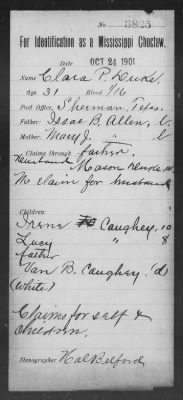 No. 3825
For Identification as a Mississippi Choctaw.
Date OCT 24 1901
Name Clara P. Duke.
Age 31 Blood 1/16
Post Office, Sherman, Texas.
Father: Isaac B. Allen,
Mother: Mary J. "
Claims through father.
Husband Mason Duke
No claim for husband
Children:
Irene Caughey, 10
Lucy " 8
father
Van B. Caughey. (d)
(White)
Claims for self &
children.
Stenographer Hal Belford